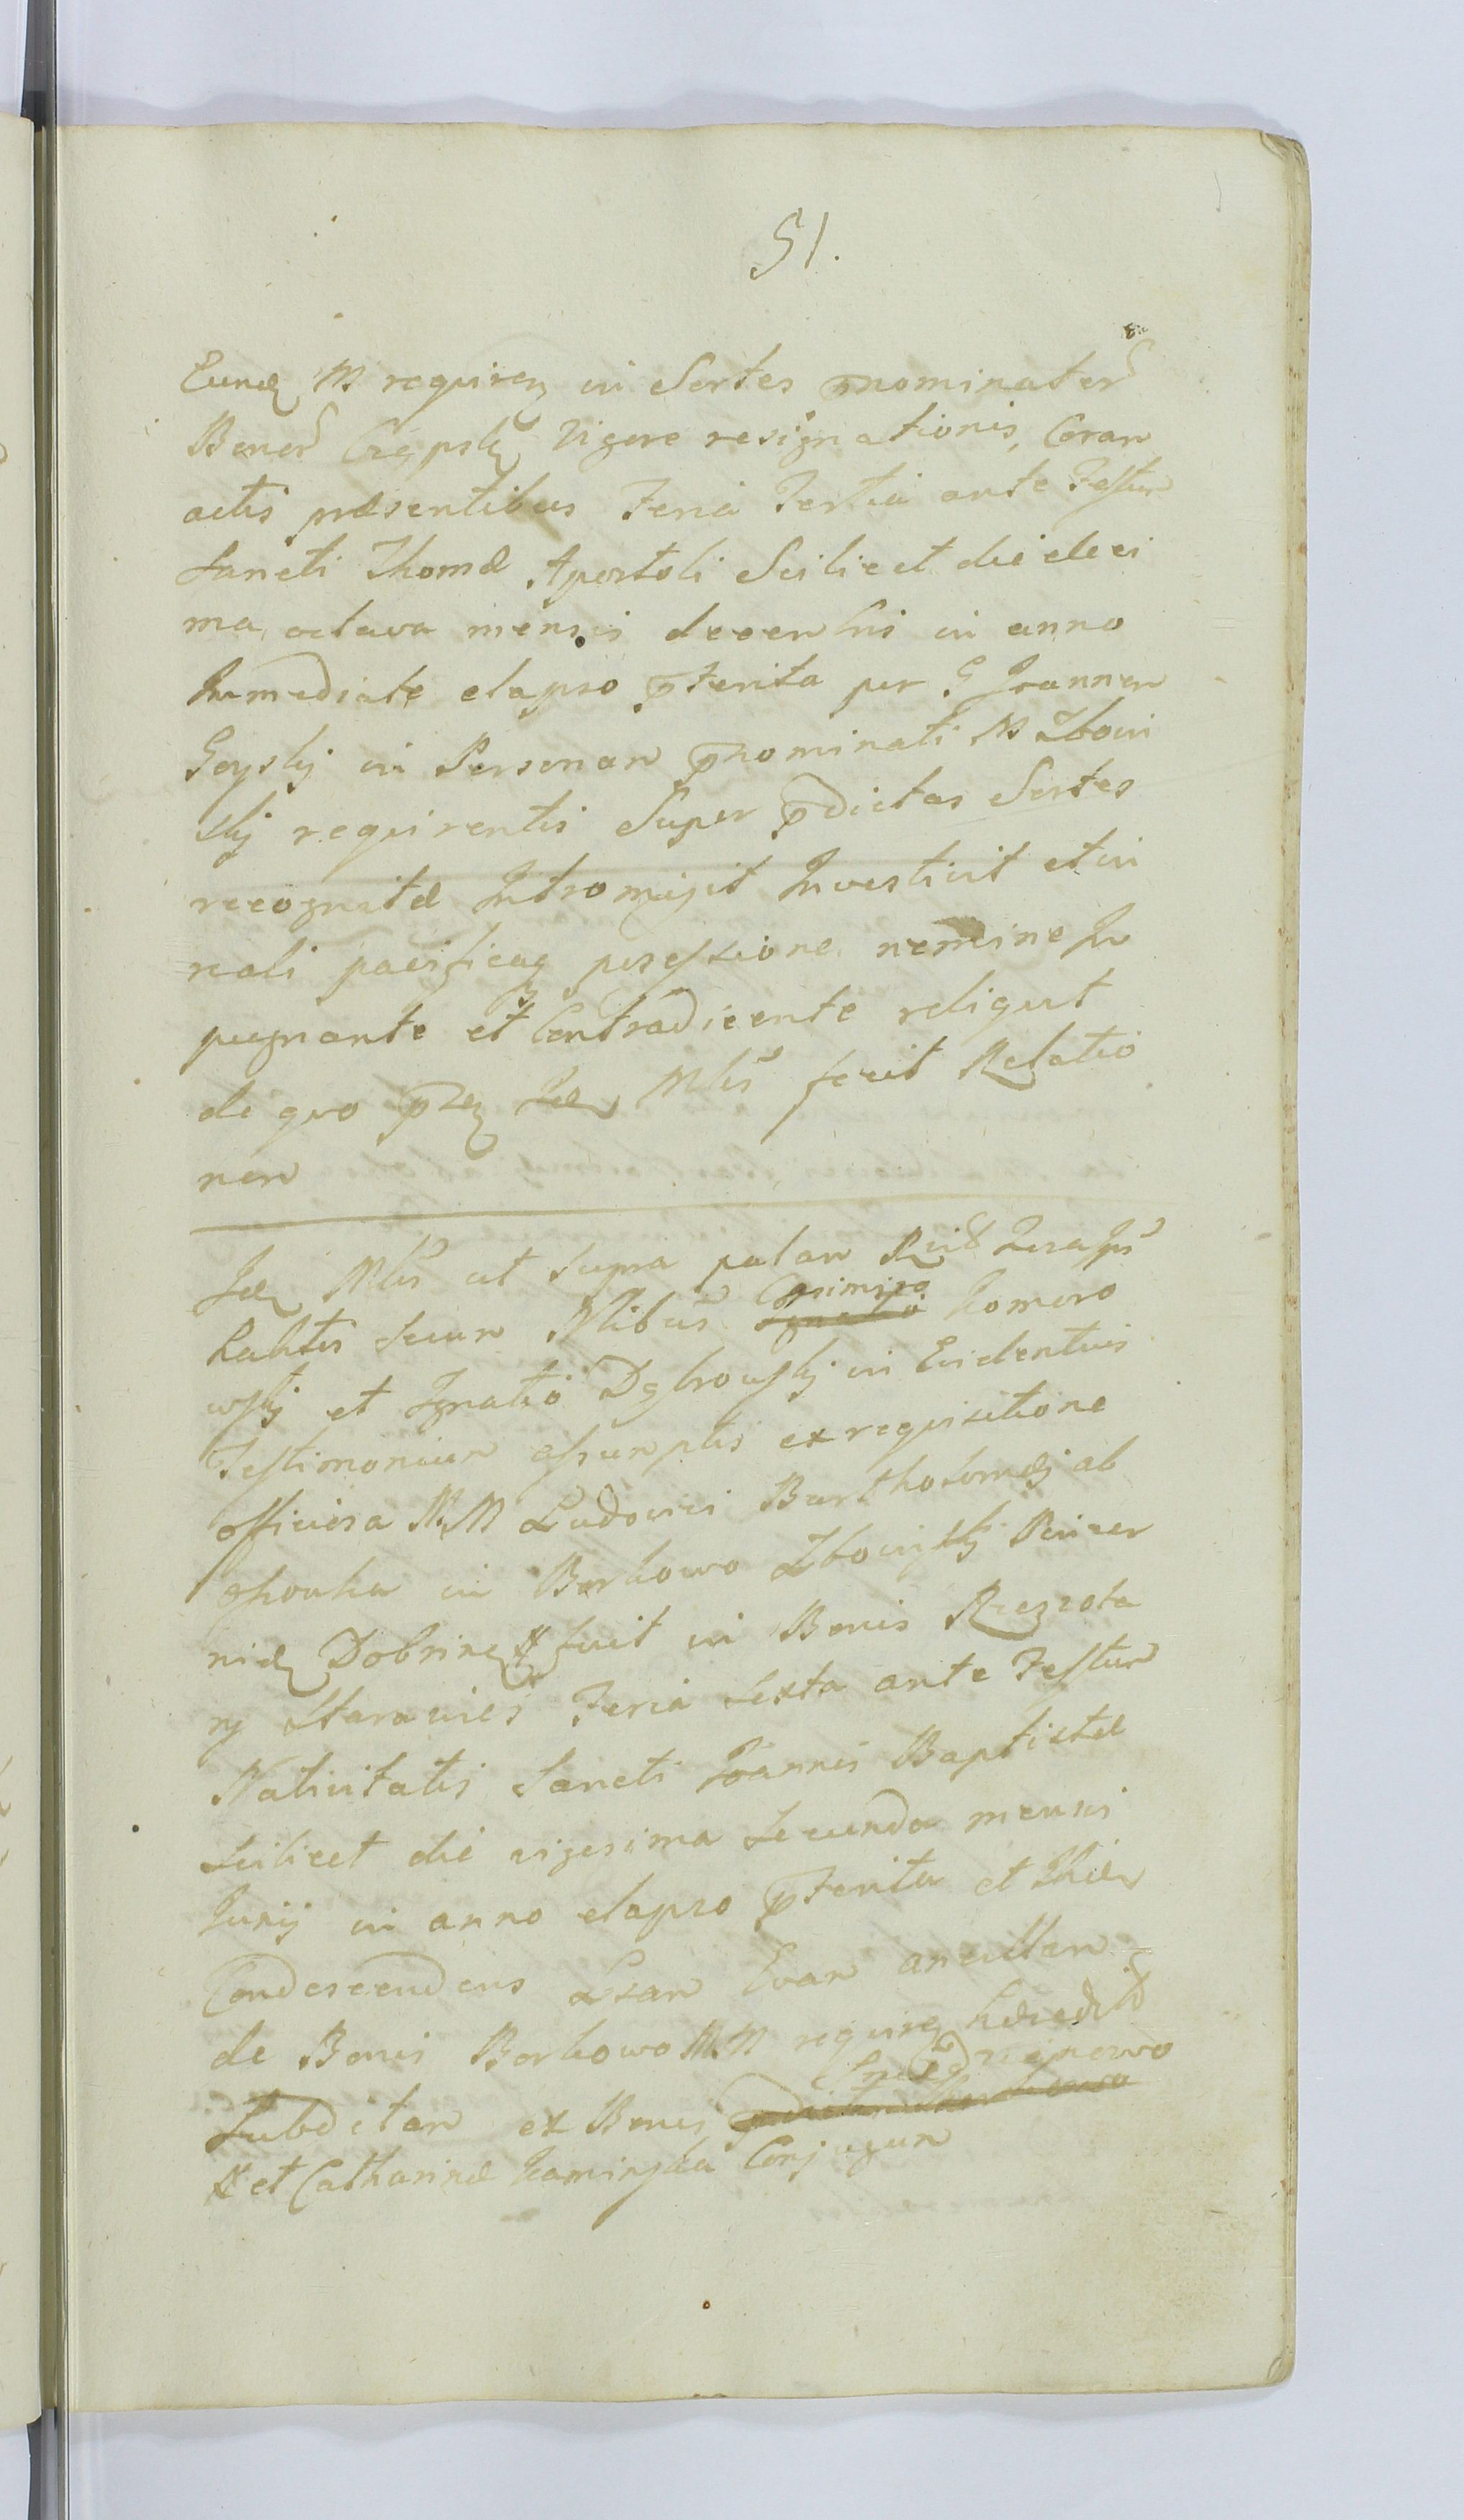 51.
Eund M requiren in Sortes pnominator
Bonor Czepsk Vigore resignationis, Coram
actis præsentibus Feria Tertia ante Festum
Sancti Thomæ Apostoli Scilicet die deci
ma octava mensis decembris in anno
Immediate elapso pterita per G Joannem
Goyskj in Personam pnominati M Zboin
skj requirentis Super pdictas Sortes
recognitæ Intromisit Investivit et in
reali pacificaq possessione nemine Im
pugnante et Contradicente reliquit
de quo pns Idem Mlis fecit Relatio
nem
Idem Mlis ut supra palam
habitis secum Nlibus Casimiro Ignatio Komoro
wskj et Ignatio Dąbrowskj in Evidentius
Testimonium assumptis ex requisitione
officiosa M.M Ludovici Bartholomæj ab
Ossowka in Borkowo Zboinskj Pincer
nid Dobrinen # fuit in Bonis
Starawies Feria Sexta ante Festum
Nativitatis Sancti Joannis Baptistæ
Scilicet die vigesima Secunda mensis
Junij in anno elapso pterita et Ibidem
Condescendens Evam ancillam
de Bonis Borkowo M.M requiren hæredit
Subditam ex Bonis
# et Catharinæ Kaminska Conjugum